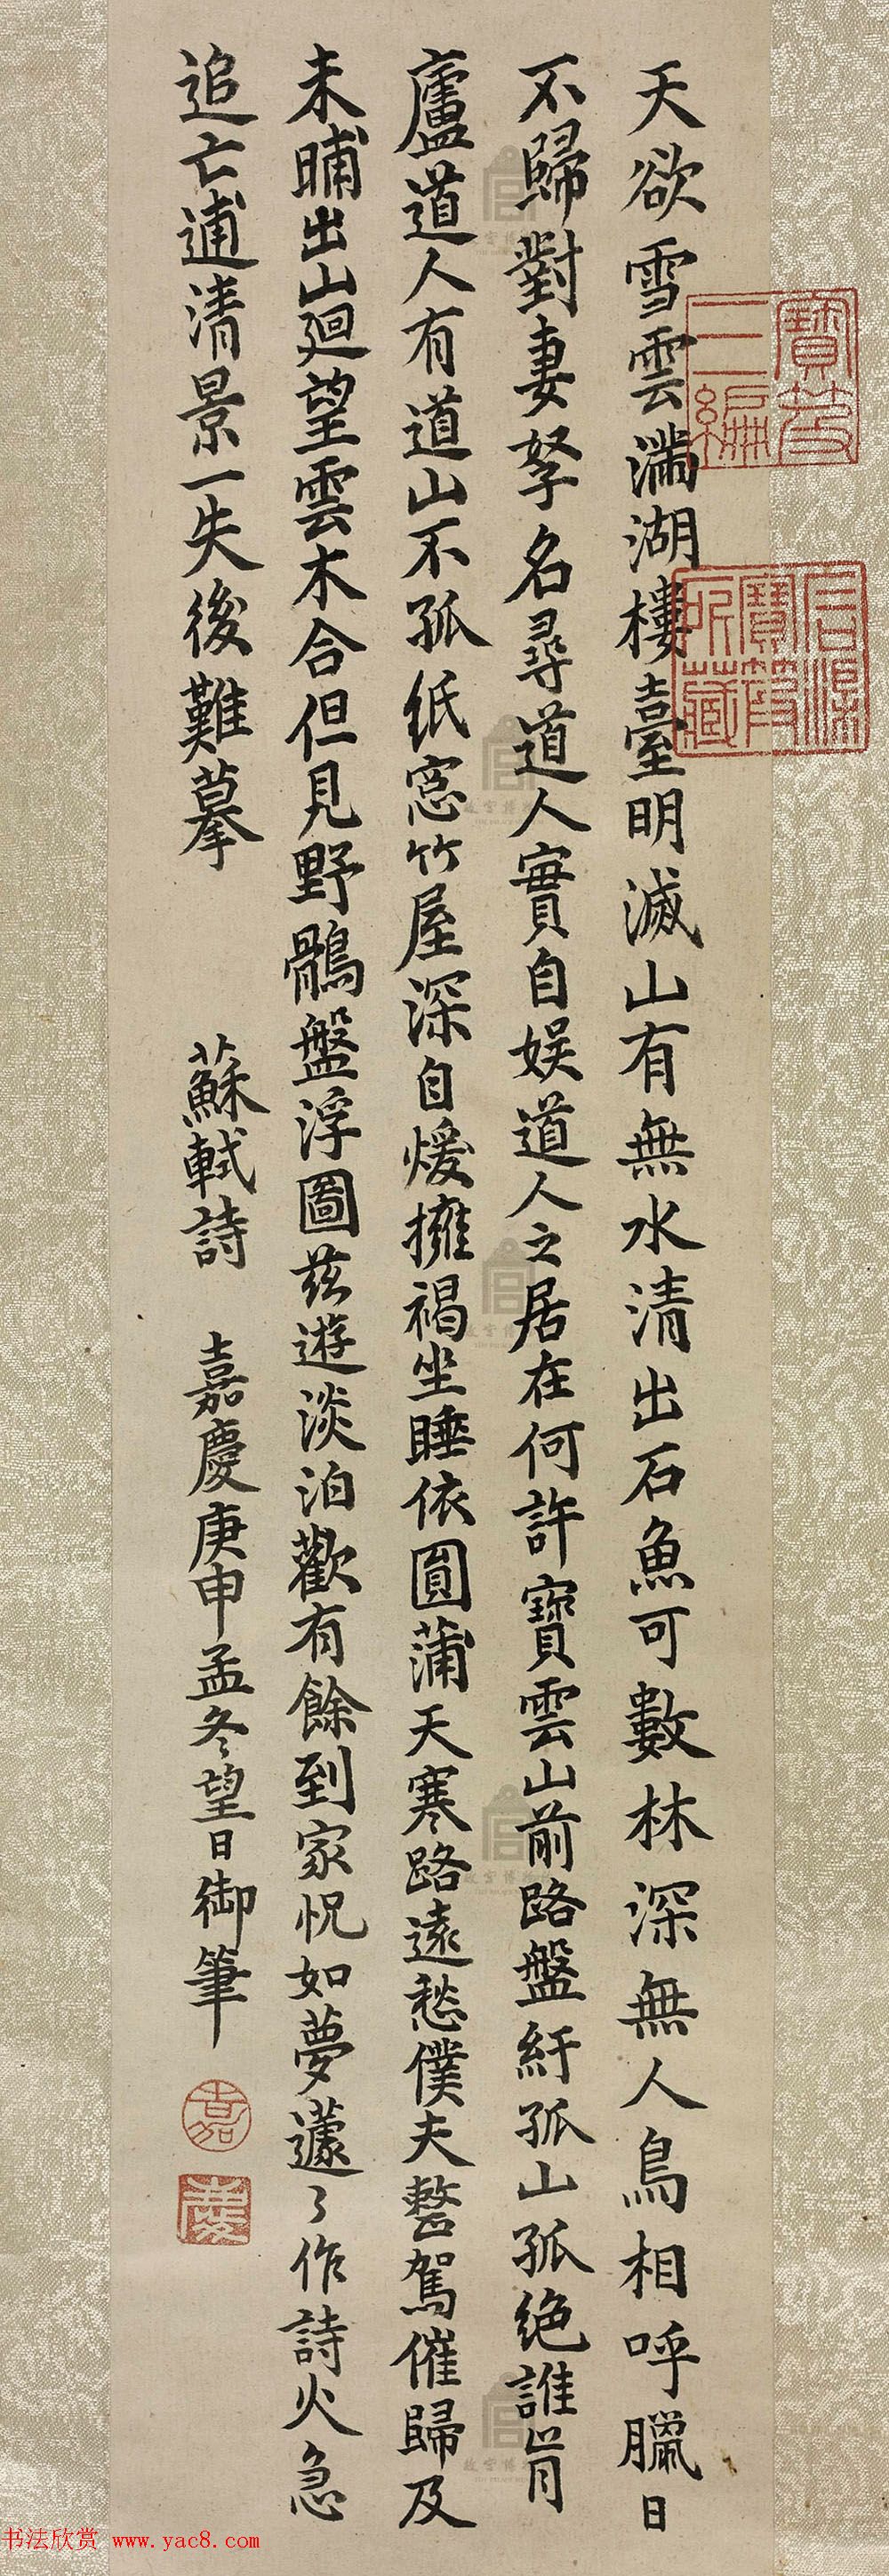 天欲雪雲滿湖樓臺明滅山有無水清出石魚可數林深無人鳥相呼臘日
不歸對妻孥名尋道人實自娛道人之居在何許寶雲山前路盤紆孤山孤絕誰肯
廬道人有道山不孤紙窓竹屋深自煖擁褐坐睡依圓蒲天寒路遠愁僕夫整駕催歸及
未晡出山廻望雲木合但見野鶻盤浮圖茲遊淡泊歡有餘到家怳如夢蘧々作詩火急
追亡逋清景一失後難摹
蘇軾詩
嘉慶庚申孟冬望日御筆
嘉
慶
寶笈
三編
石渠
寶笈
所藏
故宮博物
故宮博物
书法欣赏 www.yac8.com